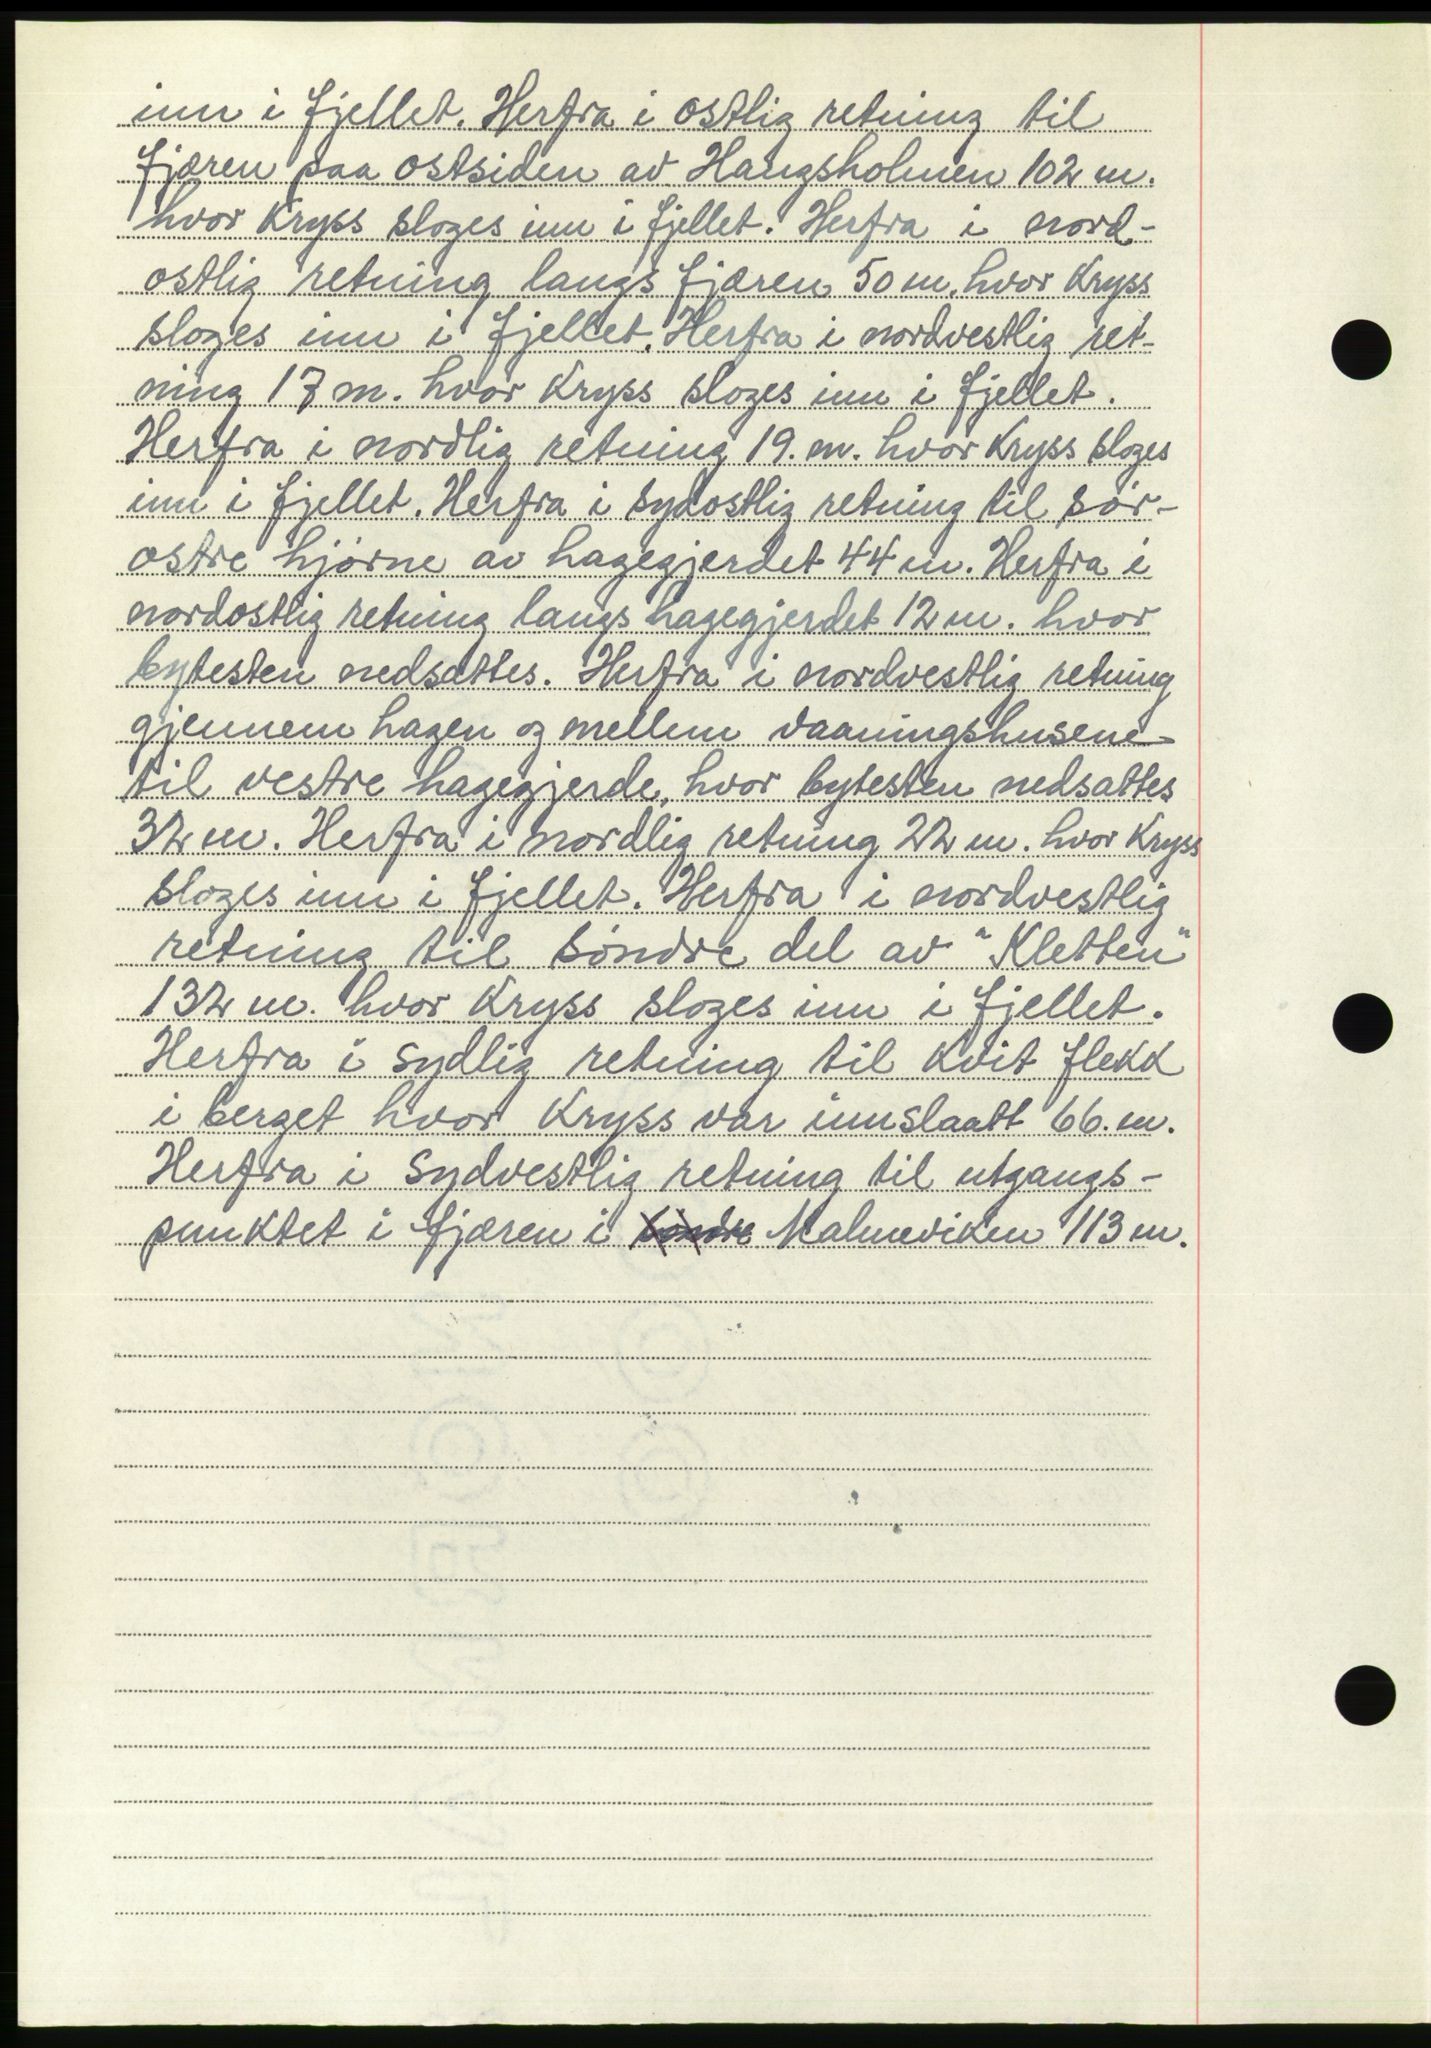 inn i fjellet. Herfra i ostlig retning til
fjæren paa ostsiden av Haugsholmen 102 m.
hvor Kryss sloges inn i fjellet. Herfra i nord-
ostlig retning langs fjæren 50 m. hvor Kryss
sloges inn i fjellet. Herfra i nordvestlig ret-
ning 17 m. hvor Kryss sloges inn i fjellet.
Herfra i nordlig retning 19. m. hvor Kryss sloges
inn i fjellet. Herfra i sydostlig retning til sör-
ostre hjörne av hagegjerdet 44 m. Herfra i
nordostlig retning langs hagegjerdet 12 m. hvor
bytesten nedsattes. Herfra i nordvestlig retning
gjennem hagen og mellem vaaningshusene
til vestre hagegjerde, hvor bytesten nedsattes
32 m. Herfra i nordlig retning 22 m. hvor Kryss
sloges inn i fjellet. Herfra i nordvestlig
retning til söndre del av "Kletten"
132 m. hvor Kryss sloges inn i fjellet.
Herfra i sydlig retning til Kvit flekk
i berget hvor Kryss var innslaatt 66. m.
Herfra i sydvestlig retning til utgangs-
punktet i fjæren i söndre Malmeviken 113 m.